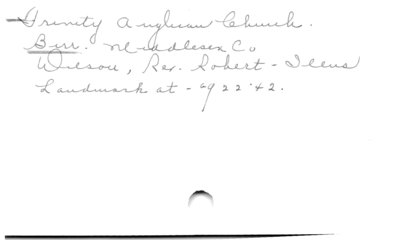 Trinity Anglican Church.
Birr. Middlesex Co
Wilson, Rev. Robert - Illus
Landmark at - 922 42.